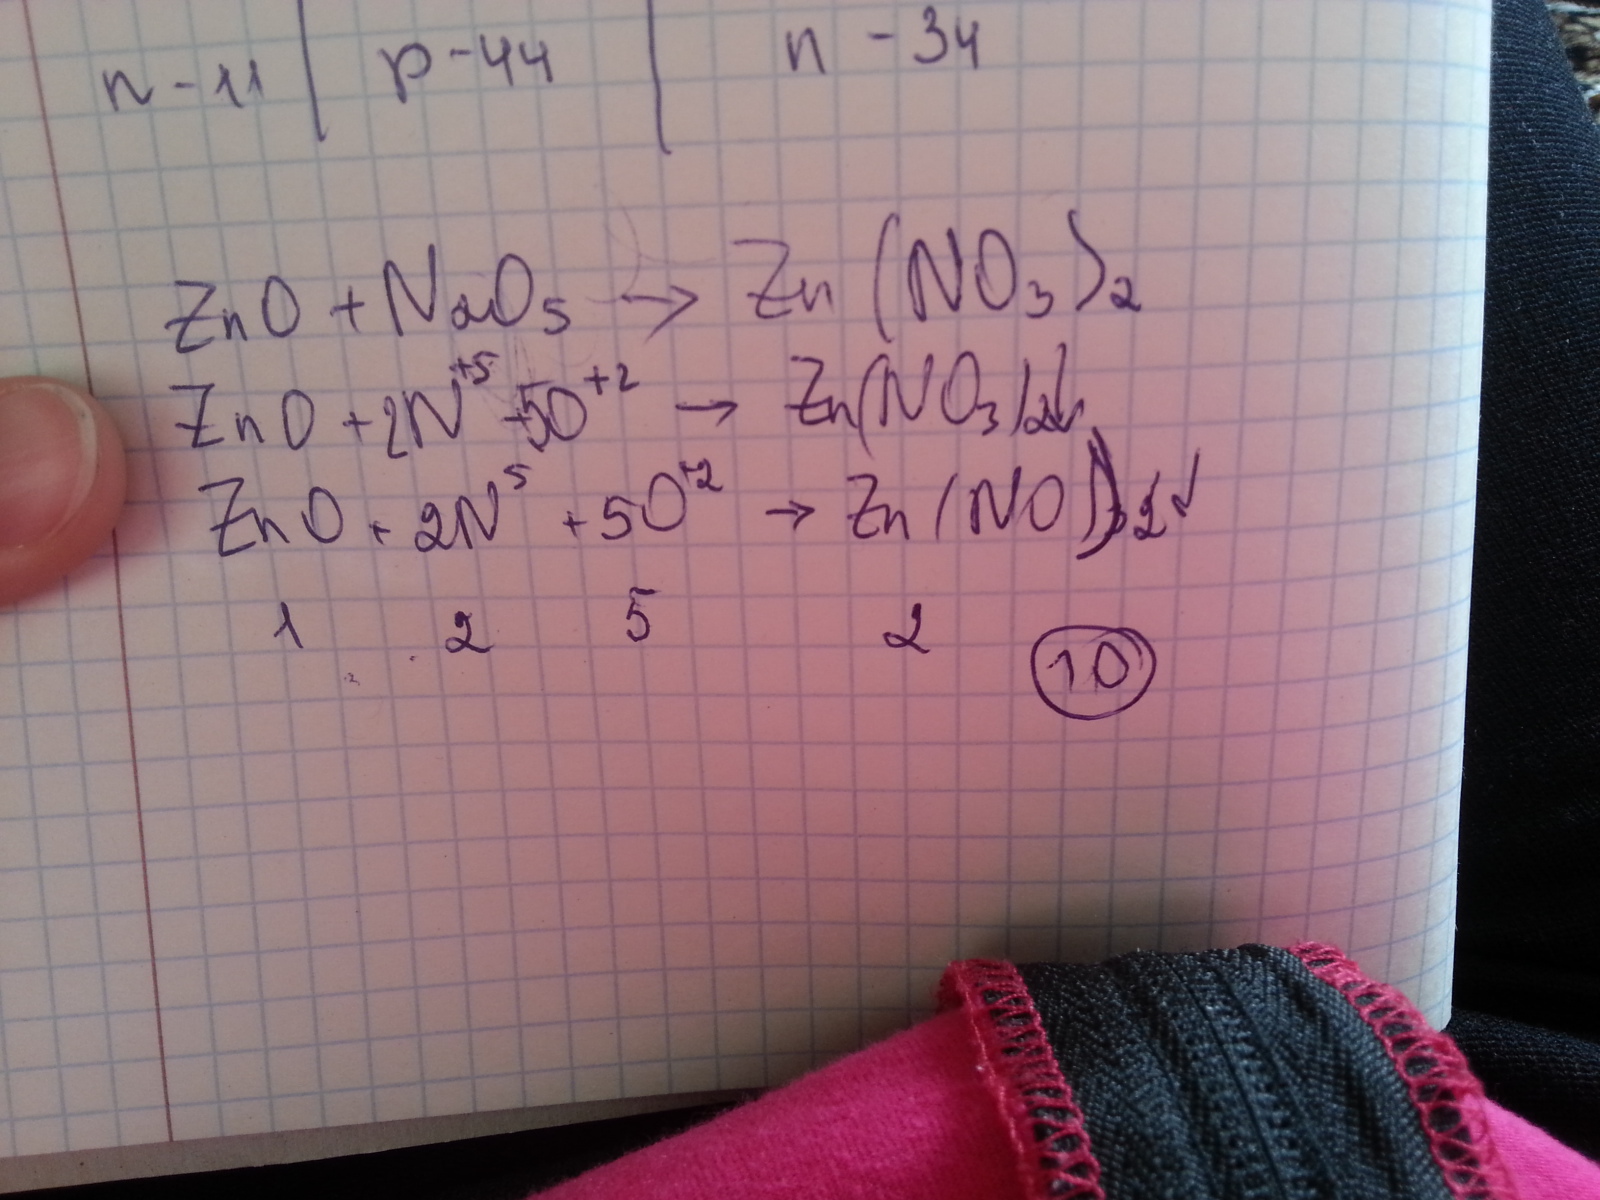 n - 11 | p - 44 | n - 34
ZnO + N₂O₅ → Zn(NO₃)₂
ZnO + 2N⁺⁵ + 5O⁺² → Zn(NO₃)₂↓
ZnO + 2N⁵ + 5O⁻² → Zn(NO)₂↓
1 2 5 2
10